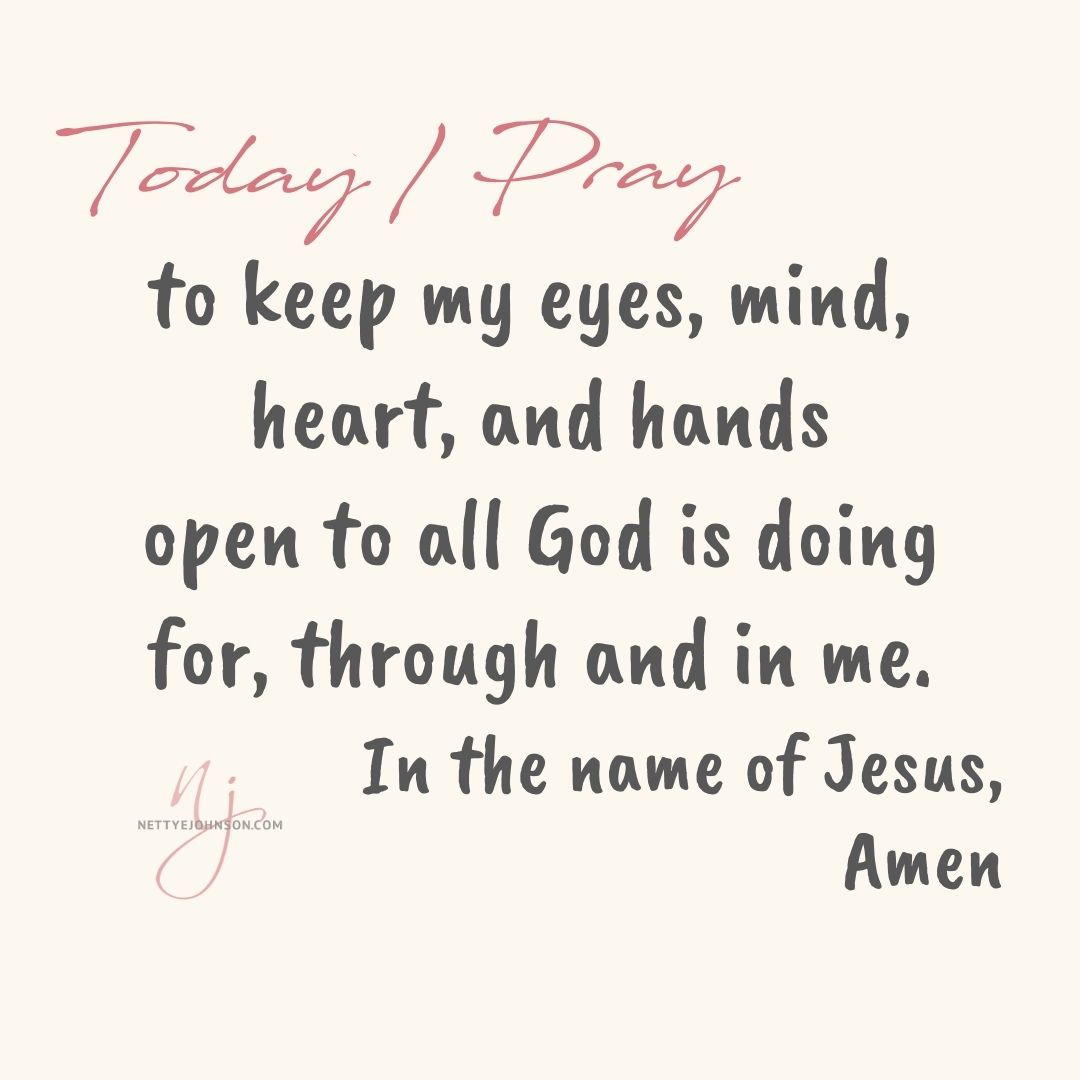 Today I Pray
to keep my eyes, mind,
heart, and hands
open to all God is doing
for, through and in me.
In the name of Jesus,
Amen
Nj
NETTYEJOHNSON.COM